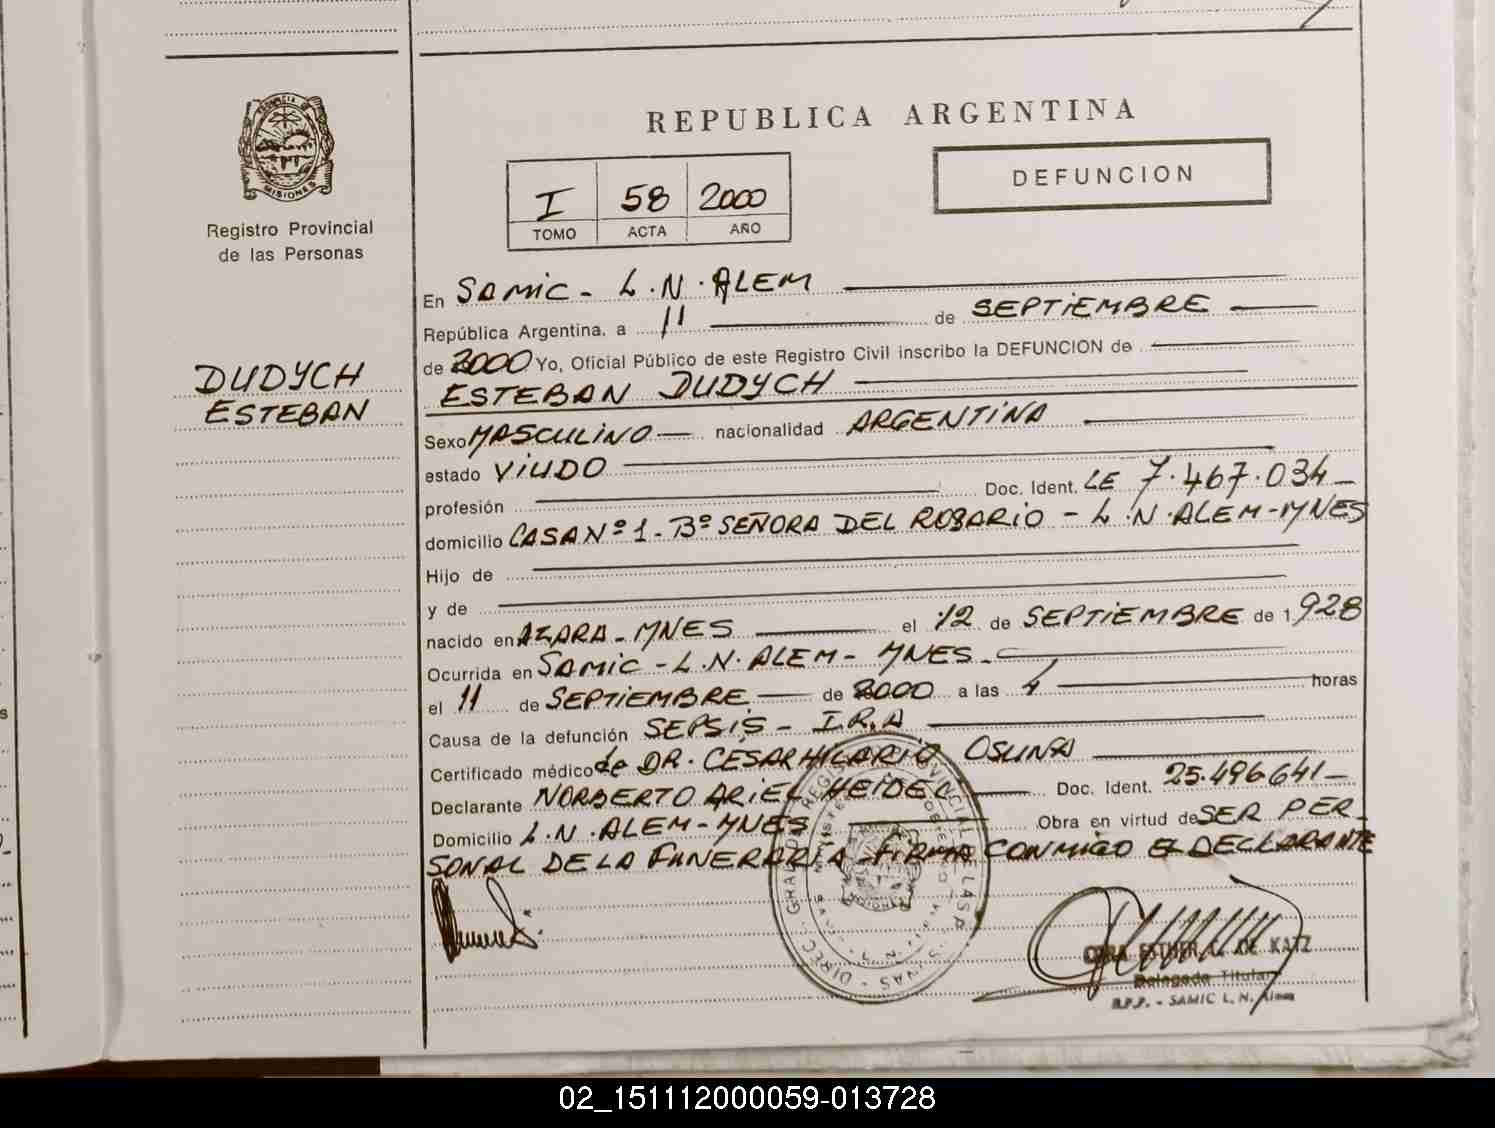 PROVINCIA DE
MISIONES
Registro Provincial
de las Personas
DUDYCH
ESTEBAN
REPUBLICA ARGENTINA
I 58 2000
TOMO ACTA AÑO
DEFUNCION
En SAMIC - L.N. ALEM
República Argentina, a 11 de SEPTIEMBRE
de 2000 Yo, Oficial Público de este Registro Civil inscribo la DEFUNCION de
ESTEBAN DUDYCH
Sexo MASCULINO nacionalidad ARGENTINA
estado VIUDO
profesión Doc. Ident. LE 7.467.034
domicilio CASA Nº 1 - Bº SEÑORA DEL ROSARIO - L.N. ALEM - MNES
Hijo de
y de
nacido en AZARA - MNES el 12 de SEPTIEMBRE de 1928
Ocurrida en SAMIC - L.N. ALEM - MNES
el 11 de SEPTIEMBRE de 2000 a las horas
Causa de la defunción SEPSIS - I.R.A
Certificado médico de DR. CESAR HILARIO OSUNA
Declarante NORBERTO ARIEL HEIDEL Doc. Ident. 25.496.641
Domicilio L.N. ALEM - MNES Obra en virtud de SER PER
SONAL DE LA FUNERARIA - FIRMA CONMIGO EL DECLARANTE
ESTHER DE KATZ
Delegada Titular
R.P.P. - SAMIC L. N. Alem
02_151112000059-013728